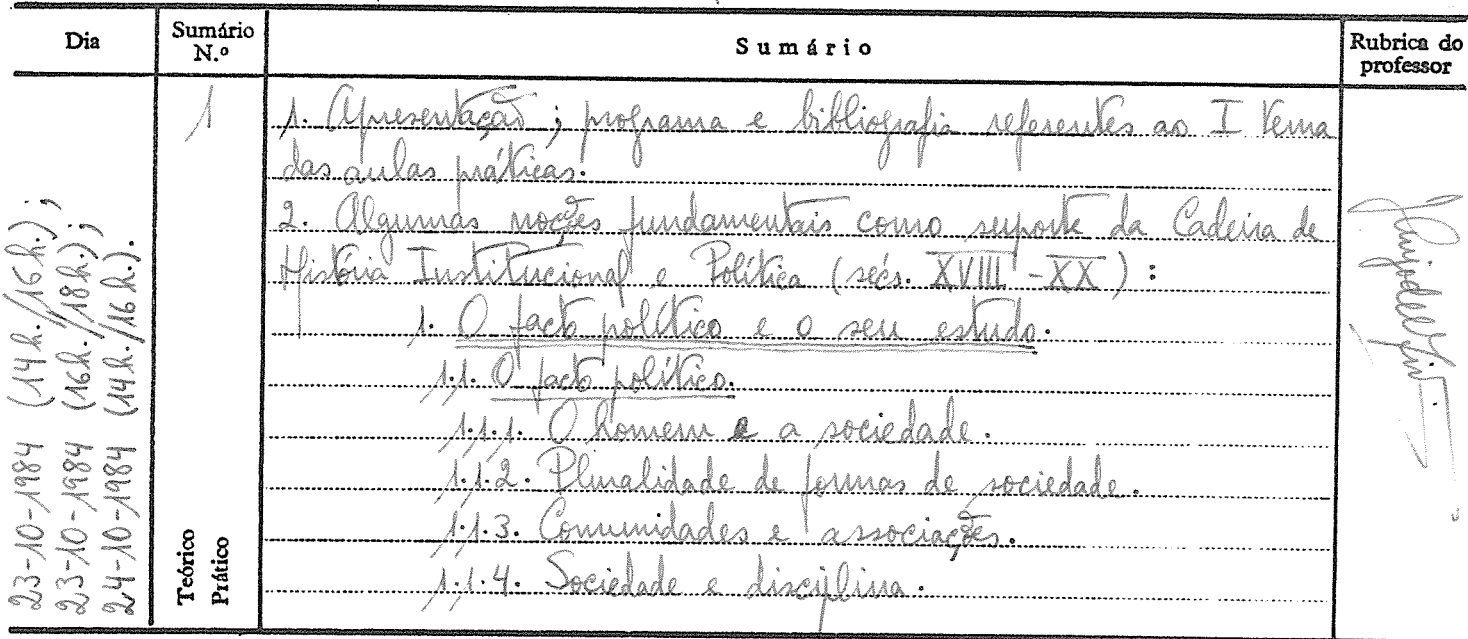 Dia
Sumário N.º
Sumário
Rubrica do professor
23-10-1984 (14h./16h.);
23-10-1984 (16h./18h.);
24-10-1984 (14h./16h.).
1
Teórico
Prático
1. Apresentação; programa e bibliografia referentes ao I Tema
das aulas práticas.
2. Algumas noções fundamentais como suporte da Cadeira de
História Institucional e Política (sécs. XVIII-XX):
1. O facto político e o seu estudo.
1.1. O facto político.
1.1.1. O homem e a sociedade.
1.1.2. Pluralidade de formas de sociedade.
1.1.3. Comunidades e associações.
1.1.4. Sociedade e disciplina.